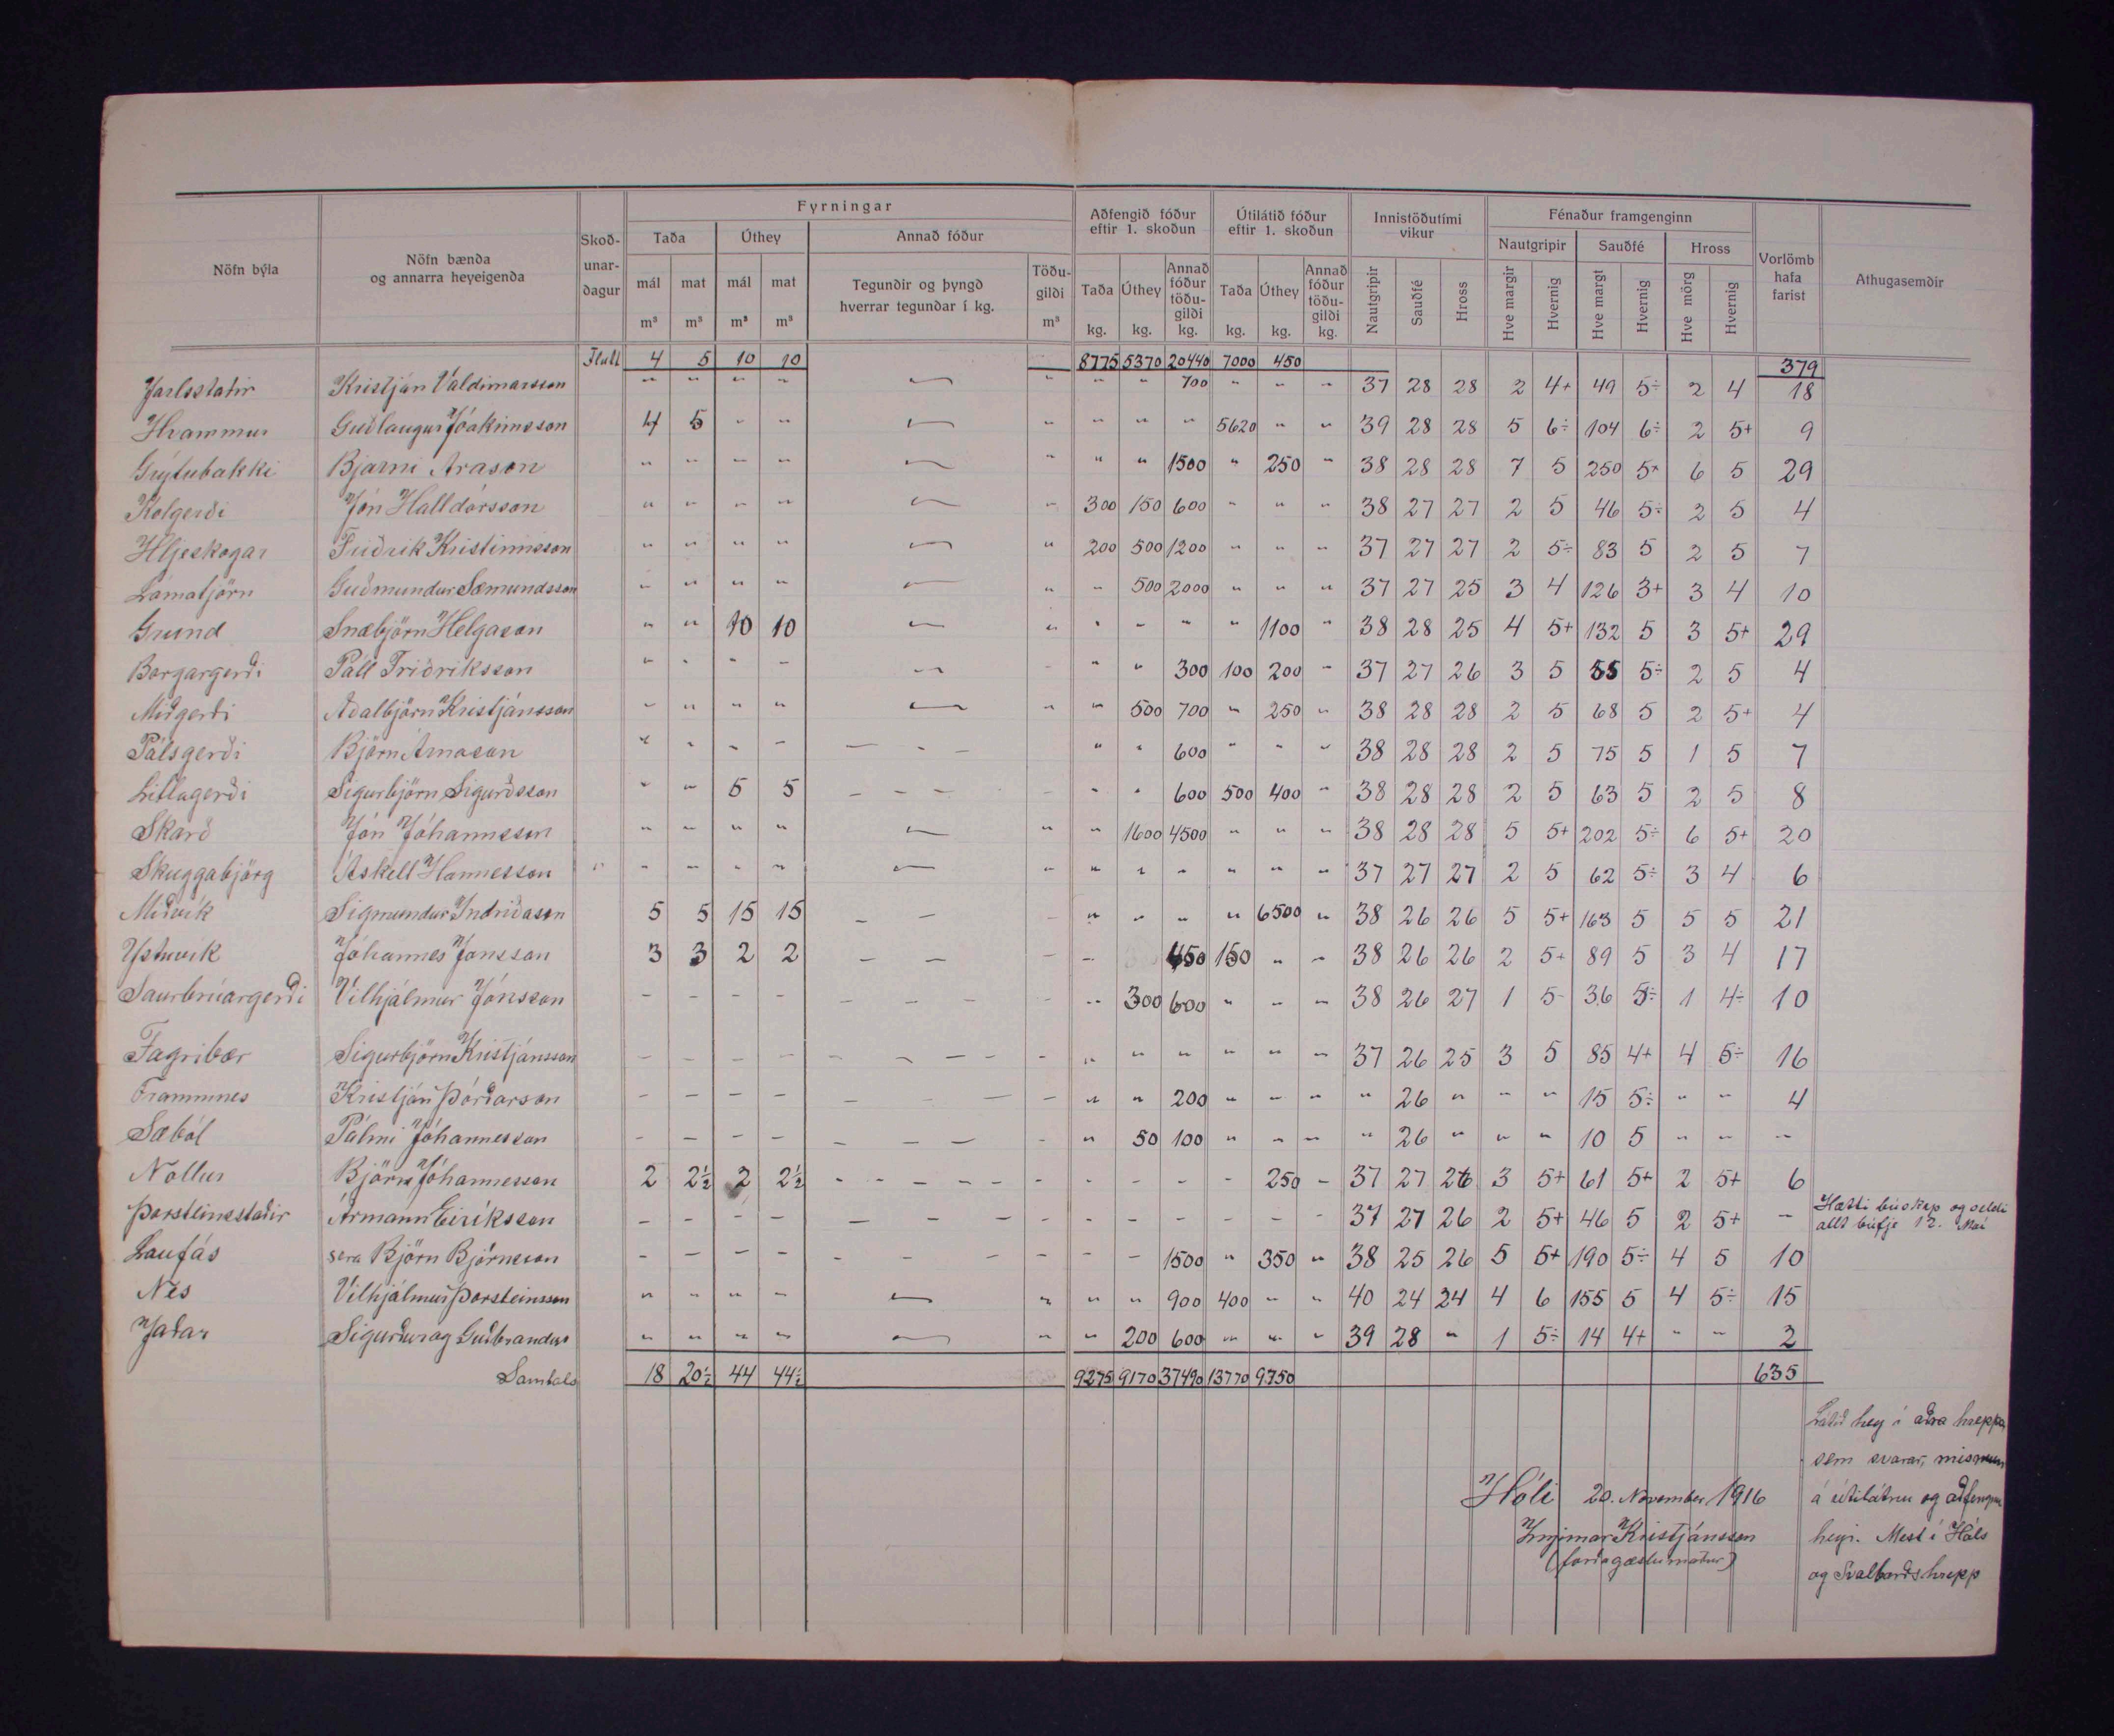 Fyrningar
Aðfengið fóður eftir 1. skoðun
Útilátið fóður eftir 1. skoðun
Innistöðutími vikur
Fénaður framgenginn
Nöfn býla
Nöfn bænda og annarra heyeigenda
Skoð-unar-dagur
Taða
Úthey
Annað fóður
Nautgripir
Sauðfé
Hross
Vorlömb hafa farist
Athugasemdir
mál m³ mat m³ mál m³ mat m³
Tegundir og þyngd hverrar tegundar í kg.
Töðu-gildi m³
Taða kg. Úthey kg. Annað fóður töðu-gildi kg. Taða kg. Úthey kg. Annað fóður töðu-gildi kg.
Nautgripir Sauðfé Hross Hve margir Hvernig Hve margt Hvernig Hve mörg Hvernig
Flutt 4 5 10 10 8775 5370 20440 7000 450 379
Jarlsstaðir Kristján Valdimarsson " " " " — " " " 700 " " " 37 28 28 2 4+ 49 5÷ 2 4 18
Hvammur Guðlaugur Jóakimsson 4 5 " " — " " " " 5620 " " 39 28 28 5 6÷ 104 6÷ 2 5+ 9
Grýtubakki Bjarni Arason " " " " — " " " 1500 " 250 " 38 28 28 7 5 250 5+ 6 5 29
Kolgerði Jón Halldórsson " " " " — " 300 150 600 " " " 38 27 27 2 5 46 5÷ 2 5 4
Hljeskogar Friðrik Kristinnsson " " " " — " 200 500 1200 " " " 37 27 27 2 5÷ 83 5 2 5 7
Lómatjörn Guðmundur Sæmundsson " " " " — " " 500 2000 " " " 37 27 25 3 4 126 3+ 3 4 10
Grund Snæbjörn Helgason " " 10 10 — " " " " " 1100 " 38 28 25 4 5+ 132 5 3 5+ 29
Borgargerði Páll Friðriksson " " " " — " " " 300 100 200 " 37 27 26 3 5 55 5÷ 2 5 4
Miðgerði Aðalbjörn Kristjánsson " " " " — " " 500 700 " 250 " 38 28 28 2 5 68 5 2 5+ 4
Pálsgerði Björn Árnason " " " " — - - " " 600 " " " 38 28 28 2 5 75 5 1 5 7
Litlagerði Sigurbjörn Sigurðsson " " 5 5 — — — - " " 600 500 400 " 38 28 28 2 5 63 5 2 5 8
Skarð Jón Jóhannsson " " " " — " " 1600 4500 " " " 38 28 28 5 5+ 202 5÷ 6 5+ 20
Skuggabjörg Áskell Hannesson " " " " " — " " " " " " " 37 27 27 2 5 62 5÷ 3 4 6
Miðvík Sigmundur Indriðason 5 5 15 15 — — " " " " 6500 " 38 26 26 5 5+ 163 5 5 5 21
Ystuvík Jóhannes Jónsson 3 3 2 2 — — — " 450 150 " " 38 26 26 2 5+ 89 5 3 4 17
Saurbrúargerði Vilhjálmur Jónsson - - - - - - - - " 300 600 " " " 38 26 27 1 5- 36 5÷ 1 4÷ 10
Fagribær Sigurbjörn Kristjánsson - - - - - - - - - " " " " " " 37 26 25 3 5 85 4+ 4 5÷ 16
Frammnes Kristján Þórðarson - - - - - - - - " " 200 " " " " 26 " " " 15 5÷ " " 4
Sæból Pálmi Jóhannesson - - - - - - - - " 50 100 " " " " 26 " " " 10 5 " " "
Nollur Björn Jóhannesson 2 2½ 2 2½ - - - - - - - - - - 250 - 37 27 26 3 5+ 61 5+ 2 5+ 6
Þorsteinsstaðir Ármann Eiríksson - - - - - - - - - - - - - - 37 27 26 2 5+ 46 5 2 5+ - Hætti búskap og seldi
allt búfje 12. Mai
Laufás sera Björn Björnsson - - - - - - - - - - 1500 " 350 " 38 25 26 5 5+ 190 5÷ 4 5 10
Nes Vilhjálmur Þorsteinsson " " " " — " " " 900 400 " " 40 24 24 4 6 155 5 4 5÷ 15
Jaðar Sigurður og Guðbrandur " " " " — " " 200 600 " " " 39 28 " 1 5÷ 14 4+ " " 2
Samtals 18 20½ 44 44½ 9275 9170 37490 13770 9750 635
Látið hey í aðra hreppa
sem svarar, mismun
Hóli 20. November 1916
á útilátnu og aðfengnu
Ingimar Kristjánsson
heyi. Mest í Háls
(forðagæslumaður)
og Svalbarðshrepp